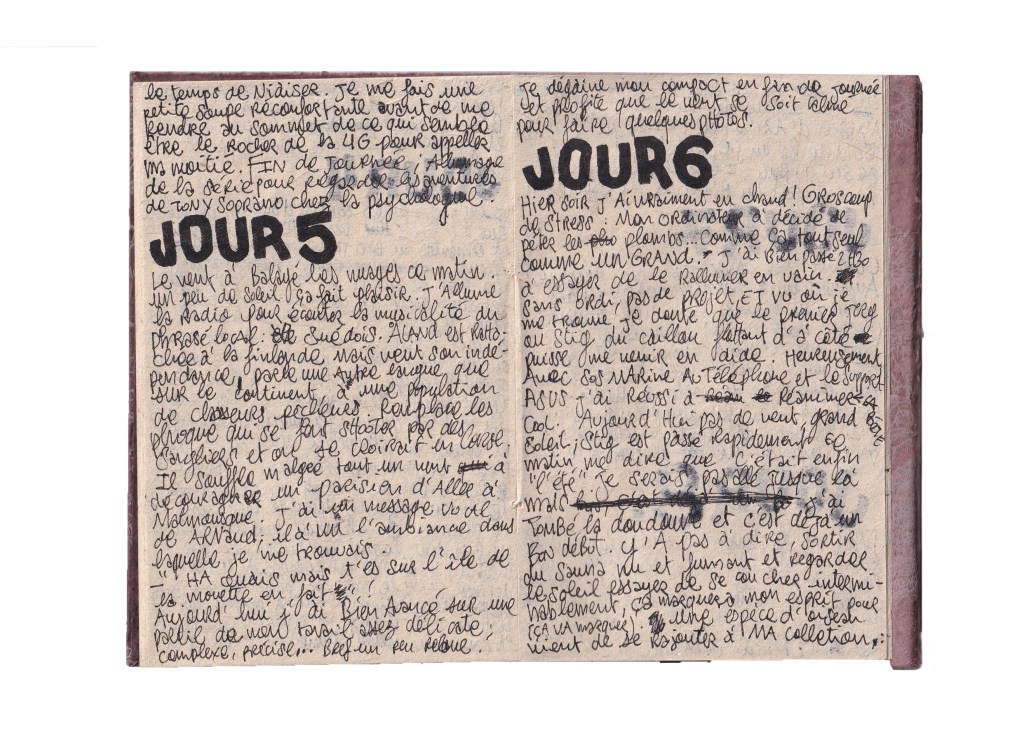 le temps de Nidiser. Je me fais une
petite soupe réconfortante avant de me
rendre au sommet de ce qui semble
être le Rocher de la 4G pour appeller
ma moitié. FIN de Journée. Allumage
de la série pour Regarder les aventures
de TONY SOPRANO chez la psychologue.
JOUR 5
Le vent à Balayé les nuages ce matin.
un peu de soleil ça fait plaisir. J'Allume
la Radio pour écouter la musicalité du
phrasé local: Suédois. ALAND est Ratta-
chée à la finlande mais veut son indé-
pendance, parle une Autre langue que
sur le continent à une population
de chasseurs pêcheurs. Remplace les
phoque qui se font shooter par des
Sangliers et on se croirait en Corse.
Il souffle malgré tout un vent à
décourager un parisien d'Aller à
Malmousque. J'ai un message vocal
de ARNAUD, il à vu l'ambiance dans
laquelle je me trouvais.
"HA ouais mais t'es sur l'île de
la mouette en fait".
Aujourd'hui j'ai Bien Avancé sur une
partie de mon travail assez délicate,
complexe, précise... Bref un peu relou.
Je dégaine mon compact en fin de journée
et profite que le vent se soit calmé
pour faire quelques photos.
JOUR 6
HIER SOIR J'Ai vraiment eu chaud! GROS coup
de STRESS: Mon ORdinateur à décidé de
péter les plombs... Comme ça tout seul
comme UN GRAND. J'ai Bien passé 2H30
à essayer de le Rallumer en vain.
Sans ordi, pas de projet, ET vu où je
me trouve, Je doute que le premier Jorg
ou Stig du caillou flottant d'à côté
puisse me venir en aide. Heureusement
Avec SOS MARine Au Téléphone et le support
ASUS J'ai Réussi à Réanimer
Cool. Aujourd'Hui pas de vent, grand
Soleil; Stig est passé Rapidement ce
matin, me dire que c'était enfin
"l'été". Je serais pas allé jusque là
mais j'ai
TOMBÉ la doudoune et c'est déjà un
Bon début. Y'A pas à dire, sortir
du Sauna nu et fumant et regarder
le soleil essayer de se coucher intermi-
nablement, ça marquera mon esprit pour
(ÇA VA marquer). une espèce d'oiseau
vient de se Rajouter à MA colletion.